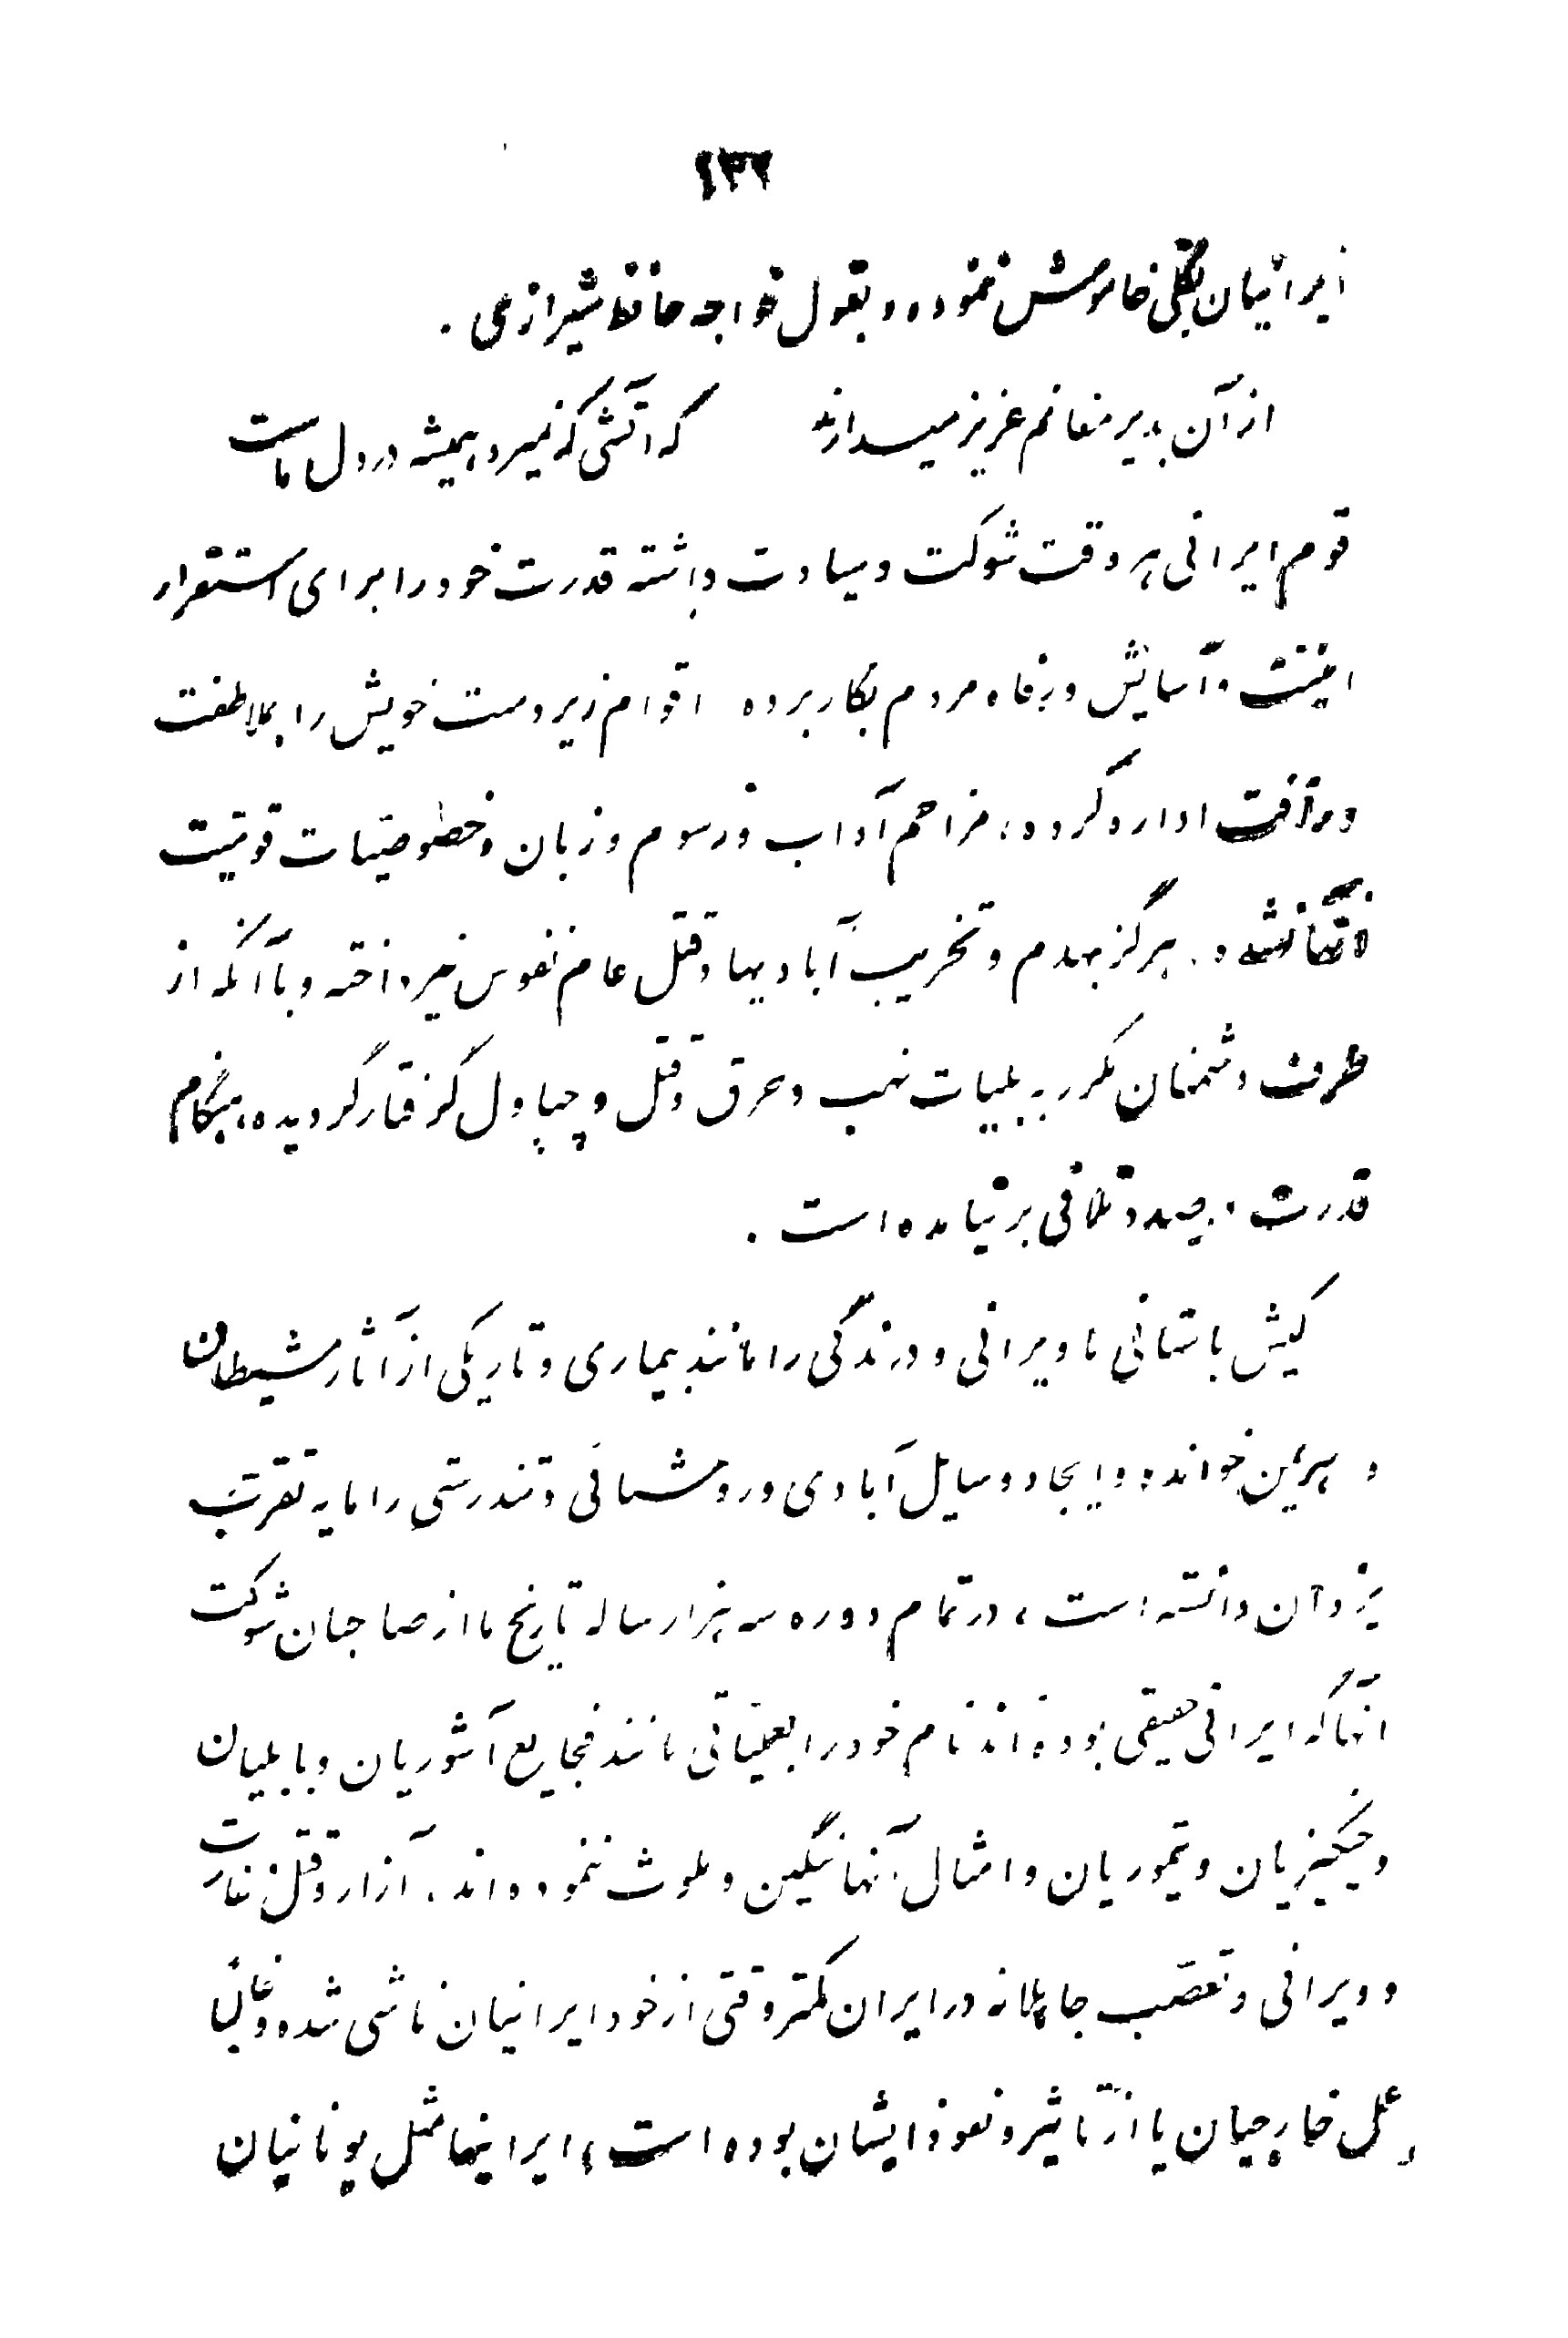 ۱۳۲
ایرانیان بکلی خاموش ننموده و بقول خواجه حافظ شیرازی .
از آن بدیر مغانم عزیز میدارند که آتشی که نمیرد همیشه در دل ماست
قوم ایرانی هر وقت شوکت و سیادت داشته قدرت خود را برای استقرار
امنیت و آسایش و رفاه مردم بکار برده اقوام زیردست خویش را بملاطفت
و رأفت اداره کرده ، مزاحم آداب و رسوم و زبان و خصوصیات قومیت
آنها نشده . هرگز بهدم و تخریب آبادیها و قتل عام نفوس نپرداخته و با آنکه از
طرف دشمنان مکرر به بلیات نهب و حرق و قتل و چپاول گرفتار گردیده ، هنگام
قدرت درصدد تلافی برنیامده است .
کیش باستانی ما ویرانی و درندگی را مانند بیماری و تاریکی از آثار شیطان
و اهریمن خوانده و ایجاد وسایل آبادی و روشنائی و تندرستی را مایه تقرب
یزدان دانسته است ، در تمام دوره سه هزار ساله تاریخ ما از صاحبان شوکت
آنها که ایرانی حقیقی بوده اند نام خود را بعملیاتی مانند فجایع آشوریان و بابلیان
و چنگیزیان و تیموریان و امثال آنها ننگین و ملوث ننموده اند . آزار و قتل و غارت
و ویرانی و تعصب جاهلانه در ایران کمتر وقتی از خود ایرانیان ناشی شده و غالبا
عمل خارجیان یا از تأثیر و نفوذ ایشان بوده است ، ایرانیها مثل یونانیان